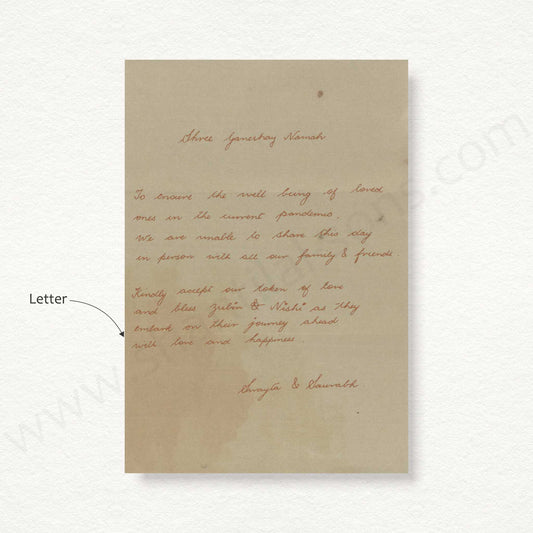 Shree Ganeshay Namah
To ensure the well being of loved
ones in the current pandemic.
We are unable to share this day
in person with all our family & friends.
Kindly accept our token of love
and bless Zubin & Nishi as they
embark on their journey ahead
with love and happiness.
Swayta & Saurabh
Letter